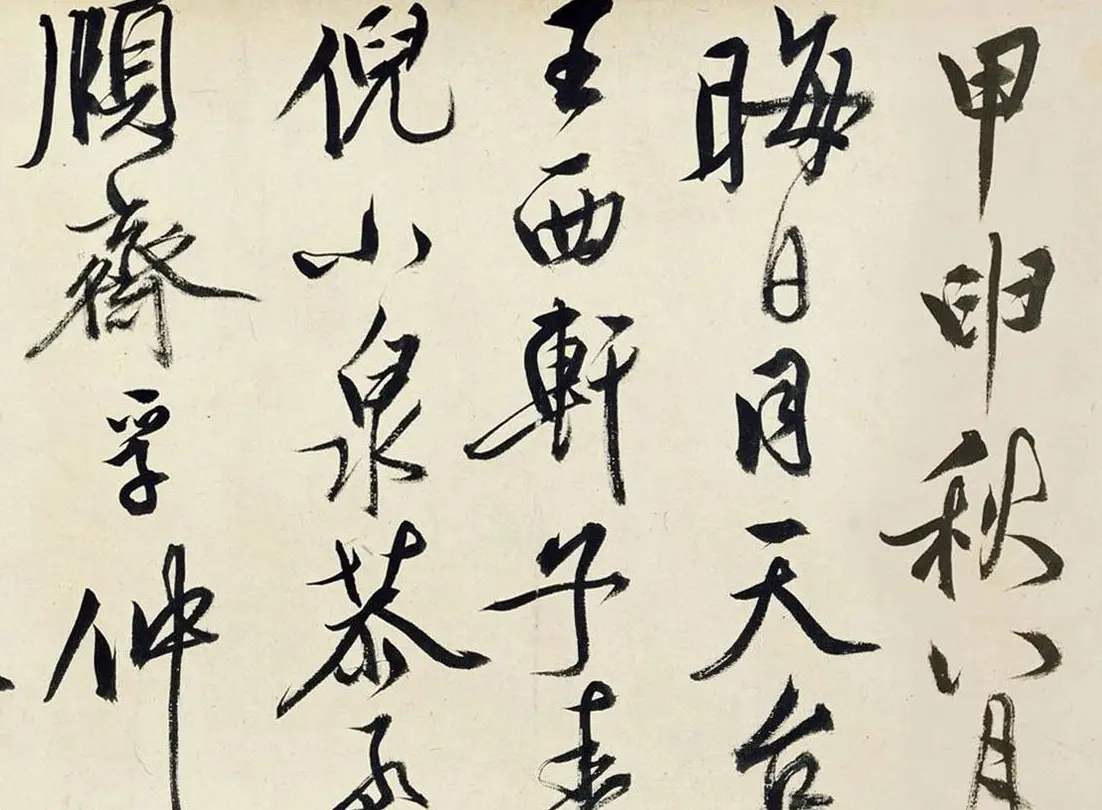 甲申秋八月
晦日同天台
王西軒子
倪小泉恭
順齋孚仲